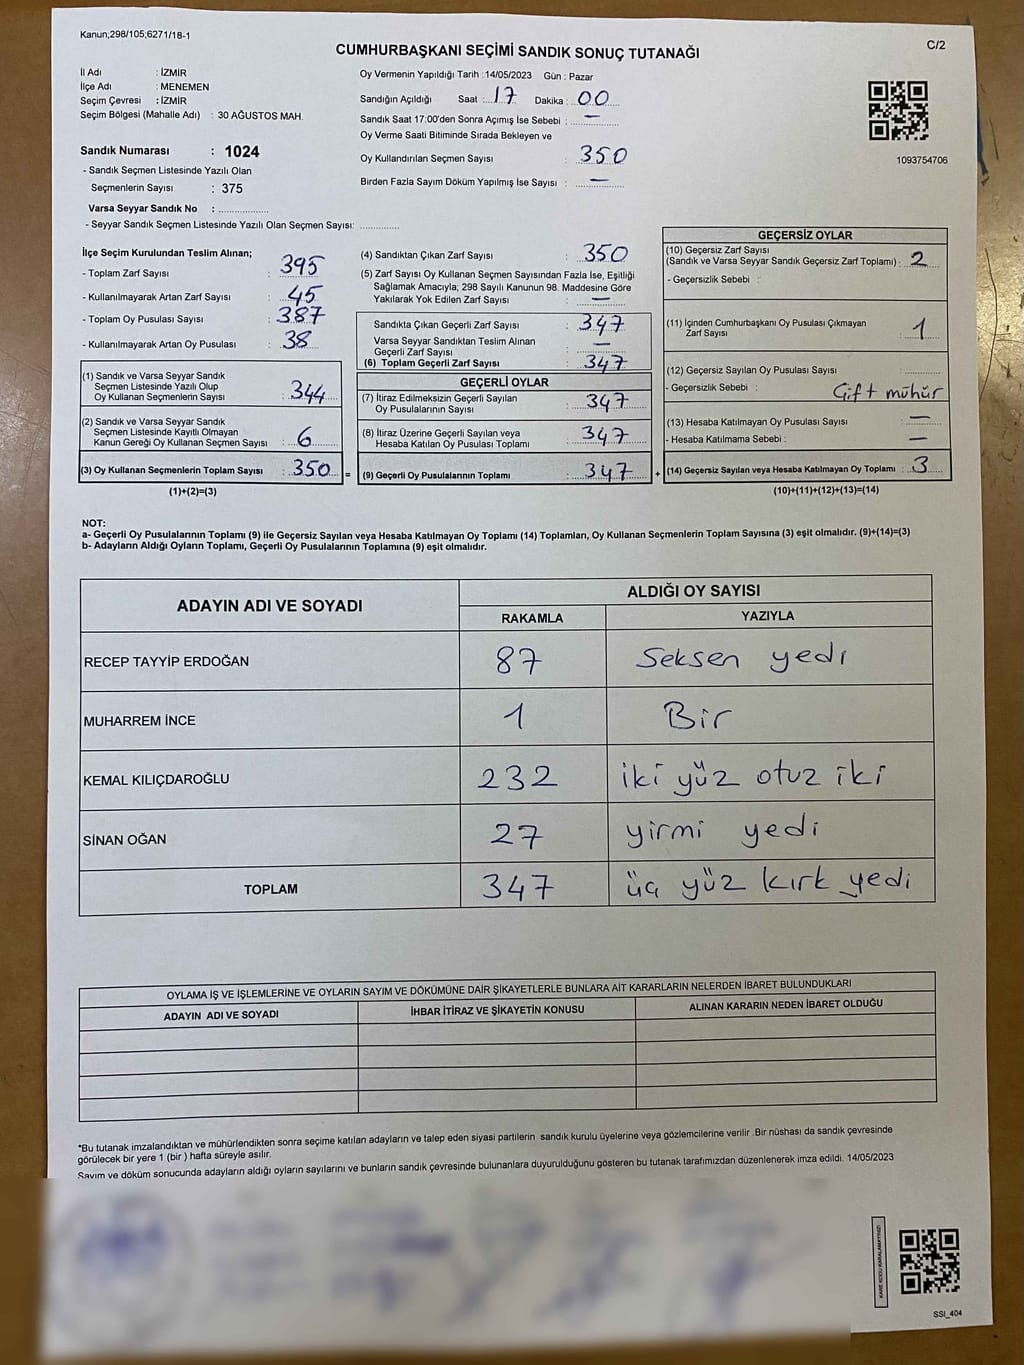 Kanun;298/105;6271/18-1
C/2
CUMHURBAŞKANI SEÇİMİ SANDIK SONUÇ TUTANAĞI
İl Adı : İZMİR
İlçe Adı : MENEMEN
Seçim Çevresi : İZMİR
Seçim Bölgesi (Mahalle Adı) : 30 AĞUSTOS MAH.
Sandık Numarası : 1024
- Sandık Seçmen Listesinde Yazılı Olan
Seçmenlerin Sayısı : 375
Varsa Seyyar Sandık No : ..................
- Seyyar Sandık Seçmen Listesinde Yazılı Olan Seçmen Sayısı: ..............
Oy Vermenin Yapıldığı Tarih :14/05/2023 Gün : Pazar
Sandığın Açıldığı Saat : 17 Dakika : 00
Sandık Saat 17:00'den Sonra Açımış İse Sebebi : —
Oy Verme Saati Bitiminde Sırada Bekleyen ve
Oy Kullandırılan Seçmen Sayısı : 350
Birden Fazla Sayım Döküm Yapılmış İse Sayısı : —
1093754706
İlçe Seçim Kurulundan Teslim Alınan;
- Toplam Zarf Sayısı : 395
- Kullanılmayarak Artan Zarf Sayısı : 45
- Toplam Oy Pusulası Sayısı : 387
- Kullanılmayarak Artan Oy Pusulası : 38
(1) Sandık ve Varsa Seyyar Sandık
Seçmen Listesinde Yazılı Olup
Oy Kullanan Seçmenlerin Sayısı : 344
(2) Sandık ve Varsa Seyyar Sandık
Seçmen Listesinde Kayıtlı Olmayan
Kanun Gereği Oy Kullanan Seçmen Sayısı : 6
(3) Oy Kullanan Seçmenlerin Toplam Sayısı : 350 =
(1)+(2)=(3)
(4) Sandıktan Çıkan Zarf Sayısı : 350
(5) Zarf Sayısı Oy Kullanan Seçmen Sayısından Fazla İse, Eşitliği
Sağlamak Amacıyla; 298 Sayılı Kanunun 98. Maddesine Göre
Yakılarak Yok Edilen Zarf Sayısı : —
Sandıkta Çıkan Geçerli Zarf Sayısı : 347
Varsa Seyyar Sandıktan Teslim Alınan
Geçerli Zarf Sayısı : —
(6) Toplam Geçerli Zarf Sayısı : 347
GEÇERLİ OYLAR
(7) İtiraz Edilmeksizin Geçerli Sayılan
Oy Pusulalarının Sayısı : 347
(8) İtiraz Üzerine Geçerli Sayılan veya
Hesaba Katılan Oy Pusulası Toplamı : 347
(9) Geçerli Oy Pusulalarının Toplamı : 347 +
GEÇERSİZ OYLAR
(10) Geçersiz Zarf Sayısı
(Sandık ve Varsa Seyyar Sandık Geçersiz Zarf Toplamı) : 2
- Geçersizlik Sebebi :
(11) İçinden Cumhurbaşkanı Oy Pusulası Çıkmayan
Zarf Sayısı : 1
(12) Geçersiz Sayılan Oy Pusulası Sayısı : ..............
- Geçersizlik Sebebi : Çift mühür
(13) Hesaba Katılmayan Oy Pusulası Sayısı : —
- Hesaba Katılmama Sebebi : —
(14) Geçersiz Sayılan veya Hesaba Katılmayan Oy Toplamı : 3
(10)+(11)+(12)+(13)=(14)
NOT:
a- Geçerli Oy Pusulalarının Toplamı (9) ile Geçersiz Sayılan veya Hesaba Katılmayan Oy Toplamı (14) Toplamları, Oy Kullanan Seçmenlerin Toplam Sayısına (3) eşit olmalıdır. (9)+(14)=(3)
b- Adayların Aldığı Oyların Toplamı, Geçerli Oy Pusulalarının Toplamına (9) eşit olmalıdır.
ADAYIN ADI VE SOYADI
ALDIĞI OY SAYISI
RAKAMLA YAZIYLA
RECEP TAYYİP ERDOĞAN 87 Seksen yedi
MUHARREM İNCE 1 Bir
KEMAL KILIÇDAROĞLU 232 iki yüz otuz iki
SİNAN OĞAN 27 yirmi yedi
TOPLAM 347 üç yüz kırk yedi
OYLAMA İŞ VE İŞLEMLERİNE VE OYLARIN SAYIM VE DÖKÜMÜNE DAİR ŞİKAYETLERLE BUNLARA AİT KARARLARIN NELERDEN İBARET BULUNDUKLARI
ADAYIN ADI VE SOYADI İHBAR İTİRAZ VE ŞİKAYETİN KONUSU ALINAN KARARIN NEDEN İBARET OLDUĞU
*Bu tutanak imzalandıktan ve mühürlendikten sonra seçime katılan adayların ve talep eden siyasi partilerin sandık kurulu üyelerine veya gözlemcilerine verilir .Bir nüshası da sandık çevresinde
görülecek bir yere 1 (bir ) hafta süreyle asılır.
Sayım ve döküm sonucunda adayların aldığı oyların sayılarını ve bunların sandık çevresinde bulunanlara duyurulduğunu gösteren bu tutanak tarafımızdan düzenlenerek imza edildi. 14/05/2023
KARE KODU KARALAMAYINIZ!
SSI_404